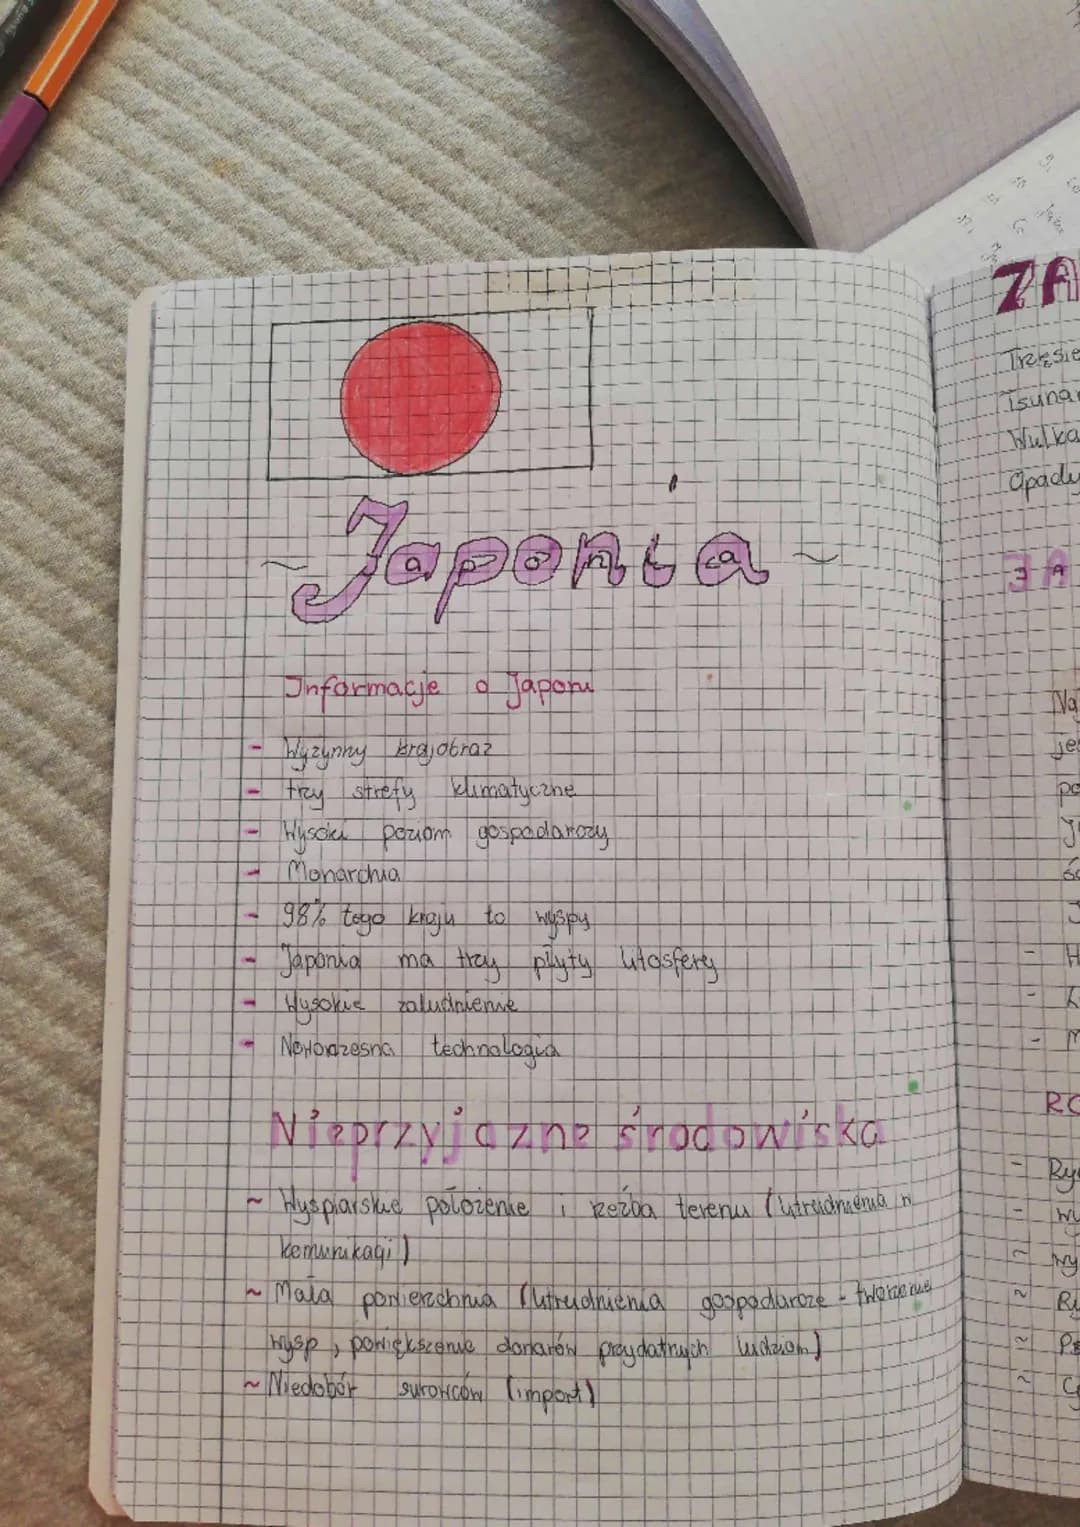 ~ Japonia ~
Informacje o Japonii
- Wyżynny krajobraz
- trzy strefy klimatyczne
- Wysoki poziom gospodarczy
- Monarchia
- 98% tego kraju to wyspy
- Japonia ma trzy płyty litosfery
- Wysokie zaludnienie
- Nowoczesna technologia
Nieprzyjazne środowiska
~ Wyspiarskie położenie i rzeźba terenu (utrudnienia w
komunikacji)
~ Mała powierzchnia (utrudnienia gospodarcze - tworzenie
wysp, powiększenie przydatnych ludziom)
~ Niedobór surowców (import)
ZA
Trzęsie
Tsuna
Wulka
Opady
ZA
Na
je
po
- H
- M
RO
- Ry
- wy
~ wy
~ Ry